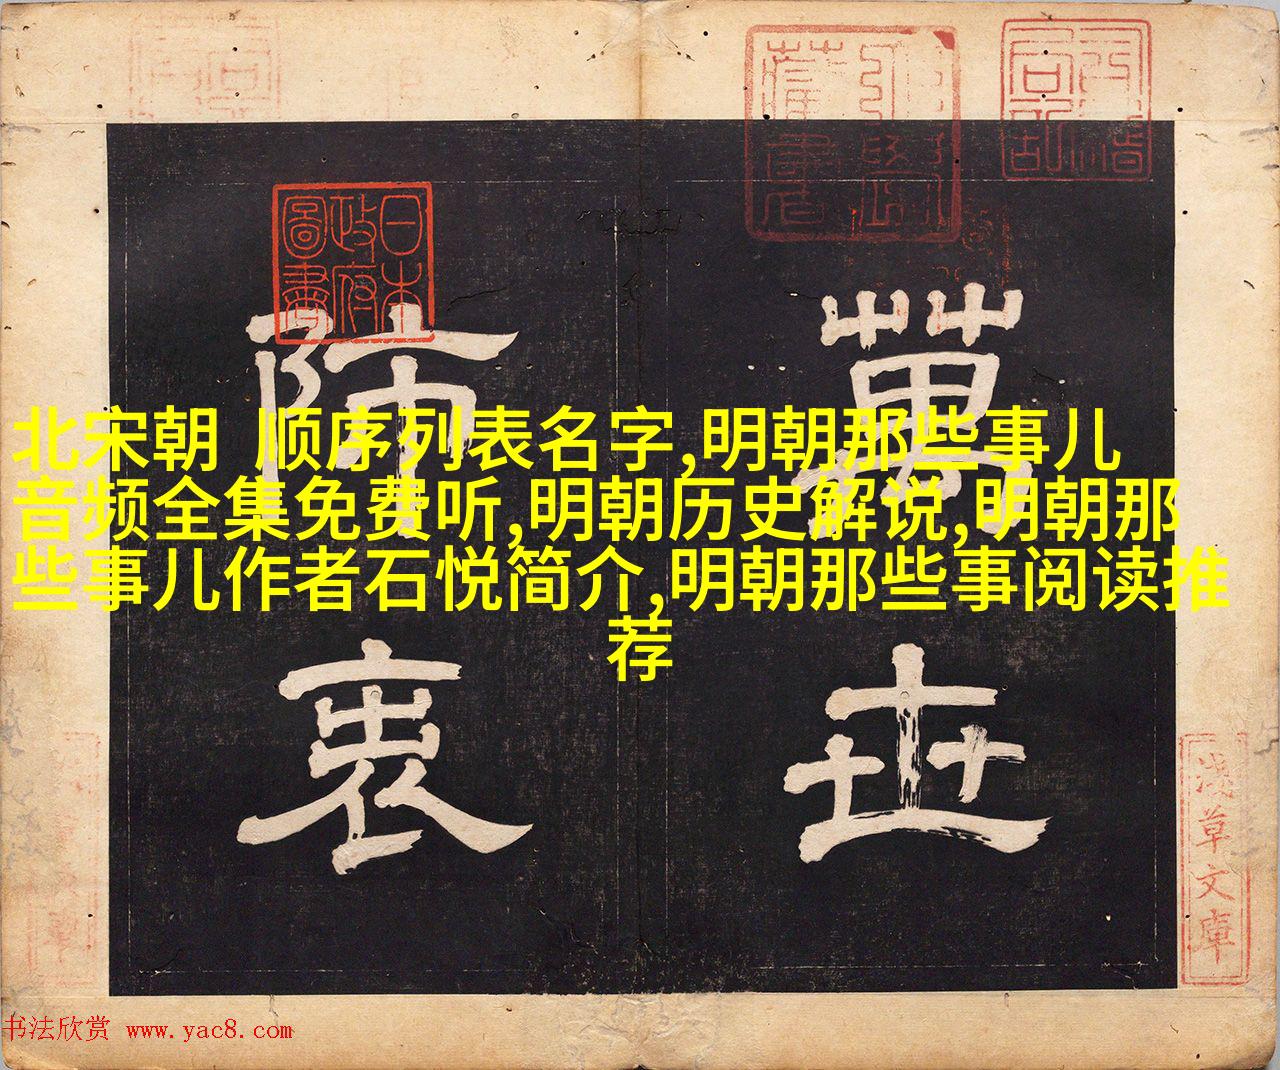 北宋朝 顺序列表名字,明朝那些事儿
音频全集免费听,明朝历史解说,明朝那
些事儿作者石悦简介,明朝那些事阅读推
荐
萬
世
陵
衰
日本
政府
圖書
淺草文庫
书法欣赏 www.yac8.com